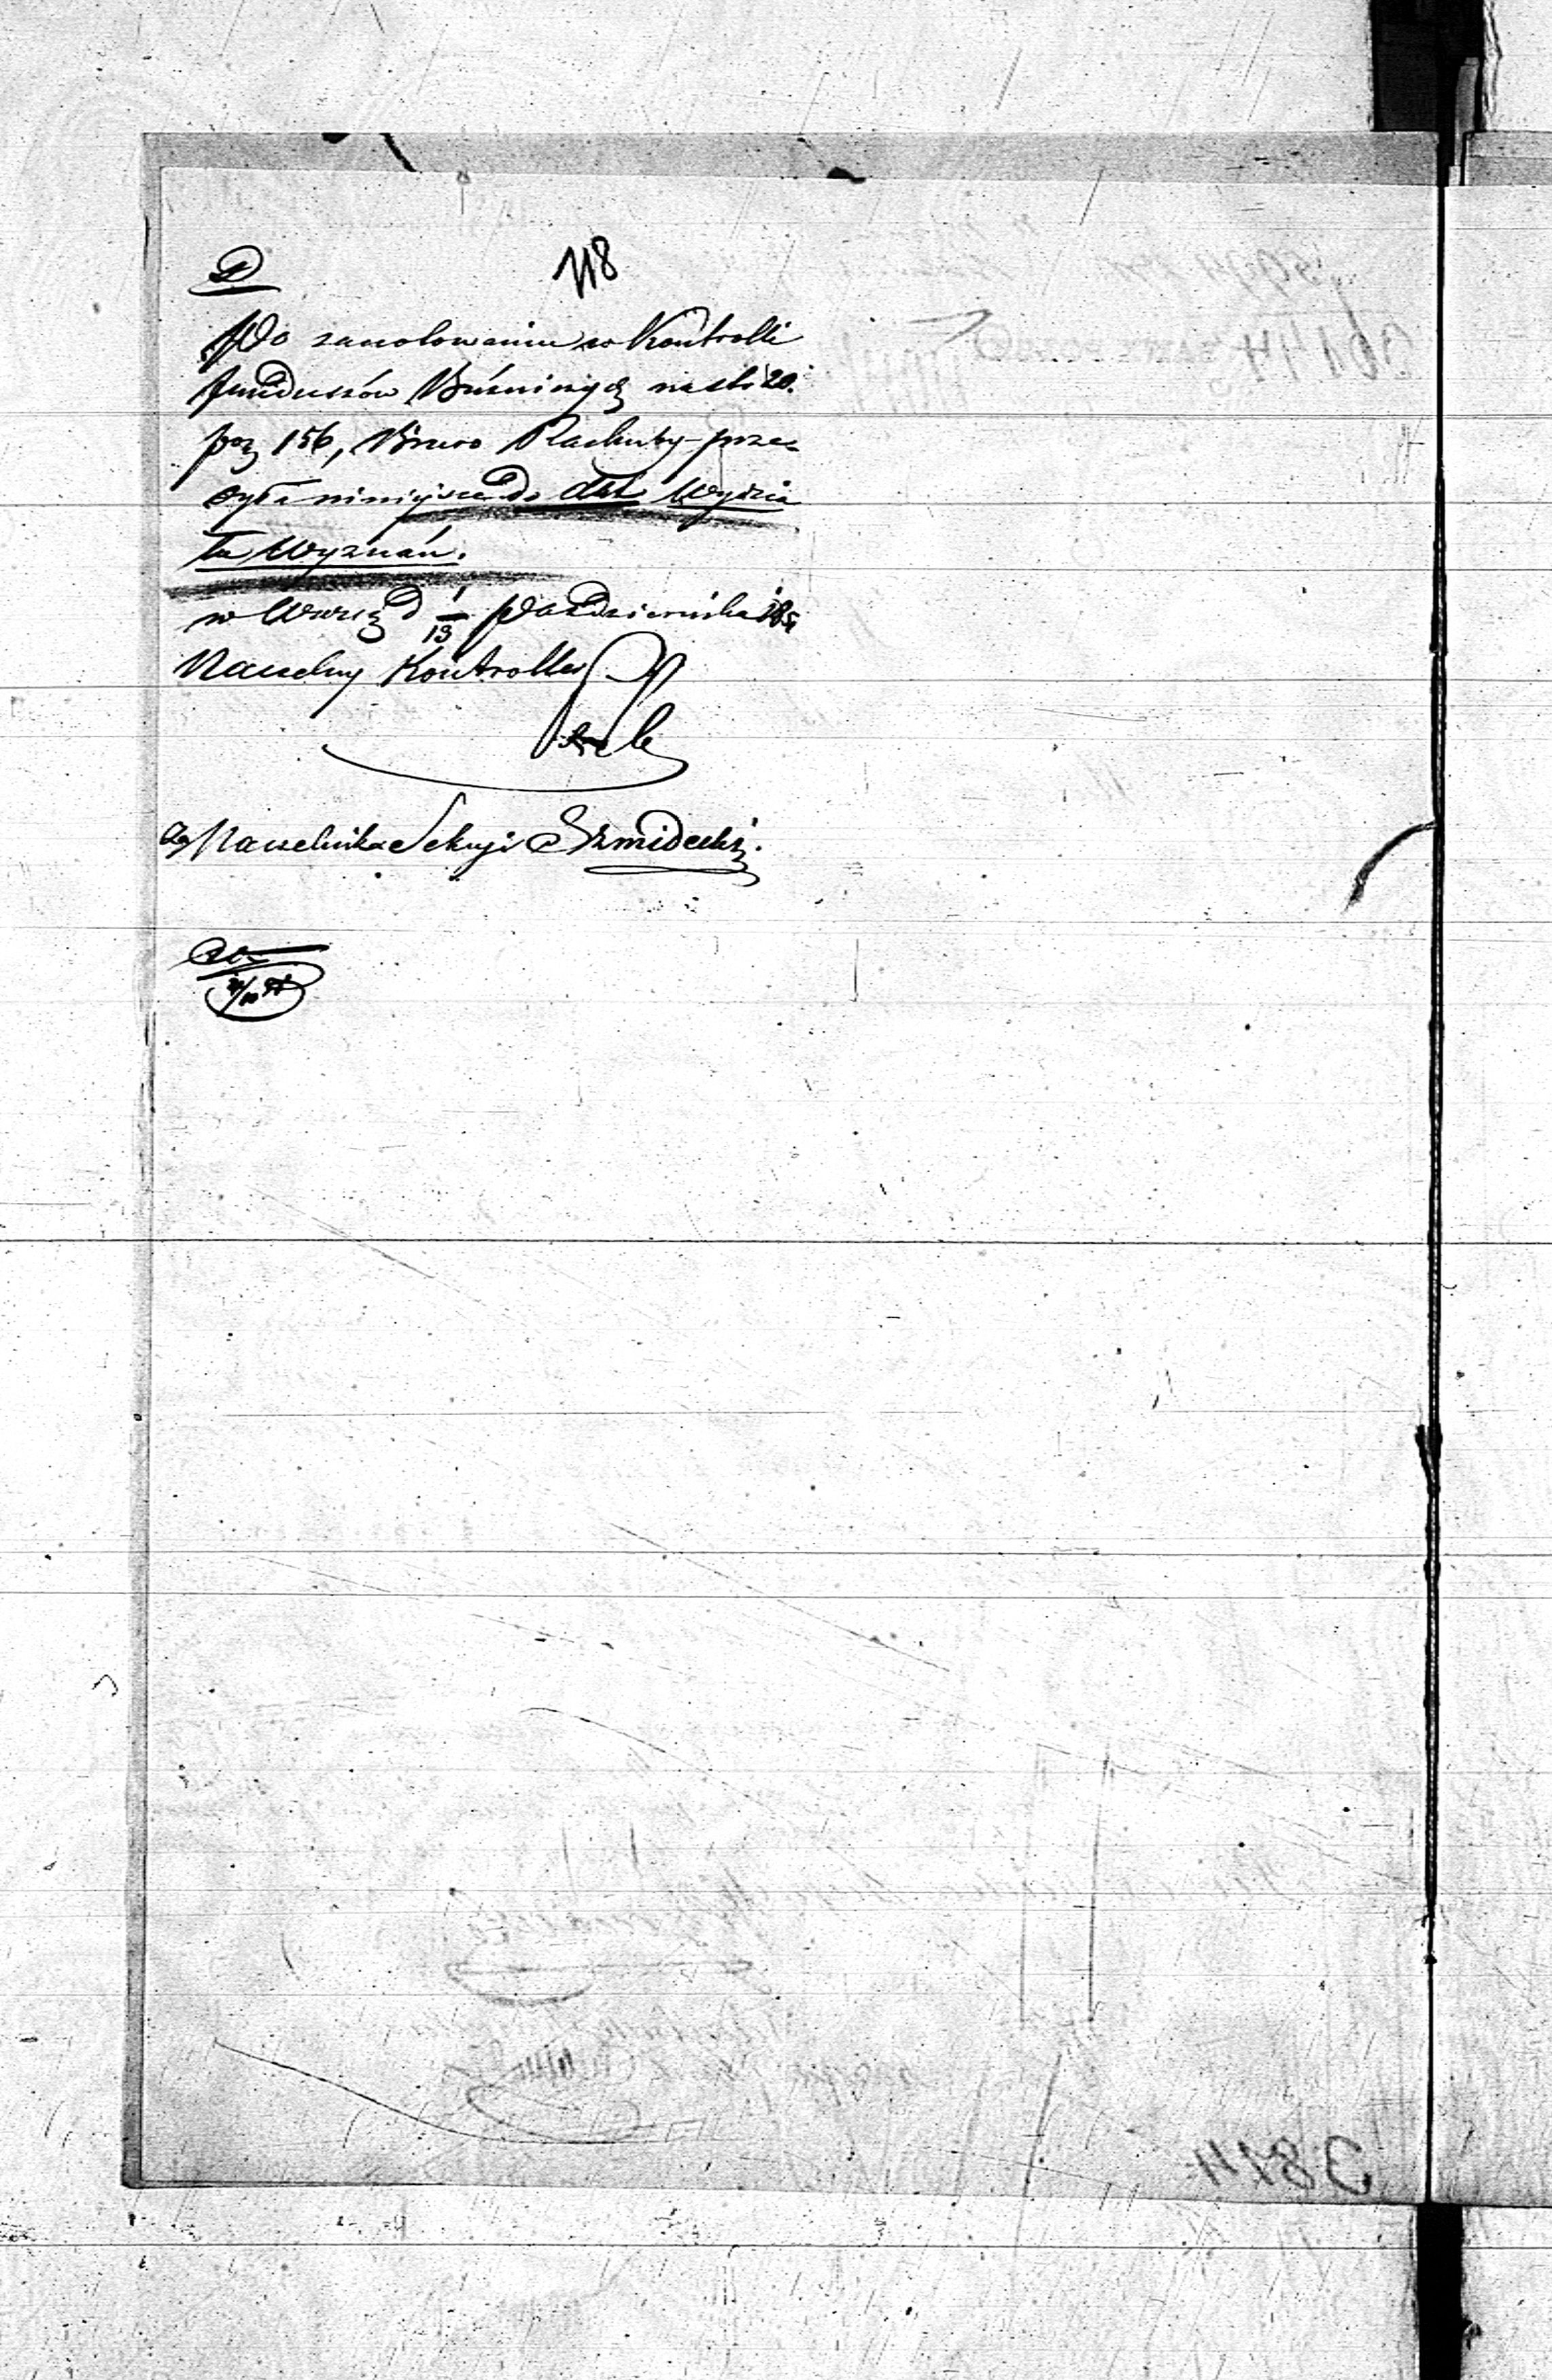 118
Po zanotowaniu w Kontrolli
funduszów Bużniczych na str 20.
poz 156, Biuro Rachuby prze-
syła niniejsze do Akt Wydzia
łu Wyznań.
w Warsz d 1/13 Października 185
Naczelny Kontroller
Za Naczelnika Sekcyi Szmidecki.